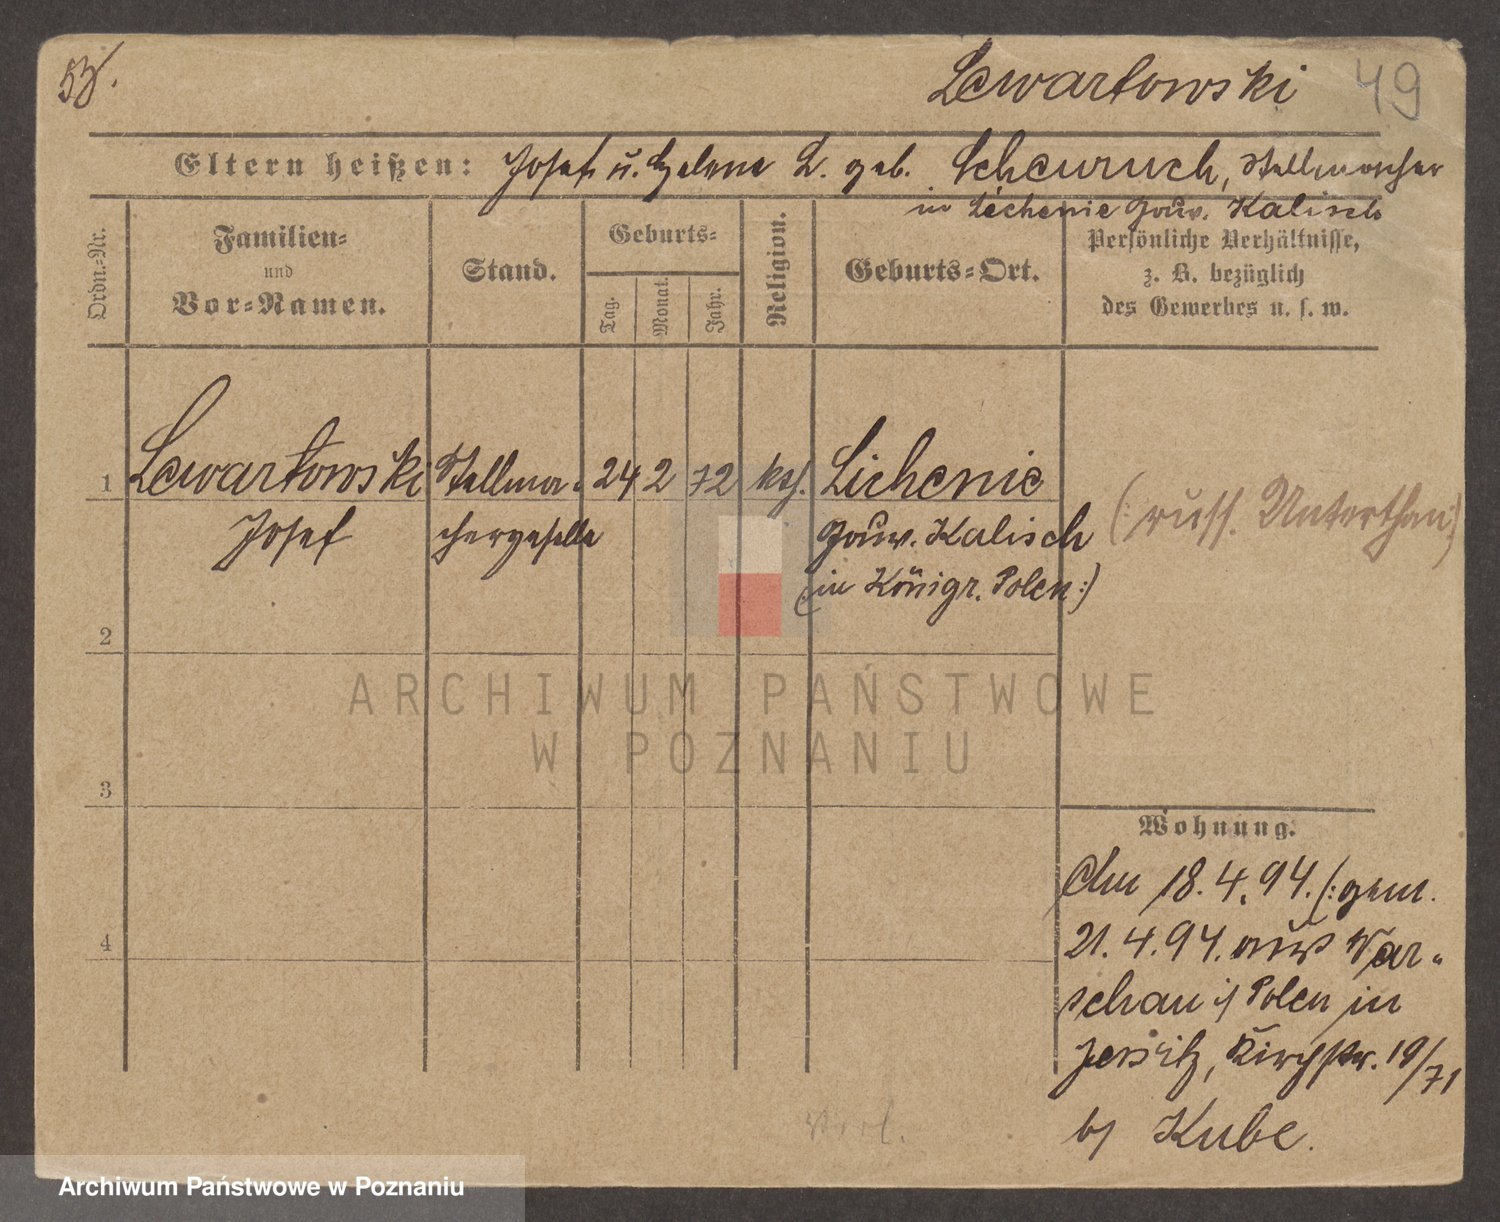 Lewartowski 49
Eltern heißen: Josef u. Helene L. geb. Scheuruch, Stellmacher
in Lichenie Gouv. Kalisch
Ordn.=Nr.
Familien=
und
Vor=Namen.
Stand.
Geburts=
Tag.
Monat.
Jahr.
Religion.
Geburts=Ort.
Persönliche Verhältnisse,
z. B. bezüglich
des Gewerbes u. s. w.
1 Lewartowski Stellma= 24 2 72 kth. Lichenie
Josef chergeselle Gouv. Kalisch (: russ. Unterthan :)
(in Königr. Polen :)
2
ARCHIWUM PAŃSTWOWE
W POZNANIU
3
Wohnung.
Am 18.4.94. (: gem.
21.4.94. aus War=
4
schau i/ Polen in
Jersitz, Kirchstr. 19/71
b/ Kube.
Archiwum Państwowe w Poznaniu